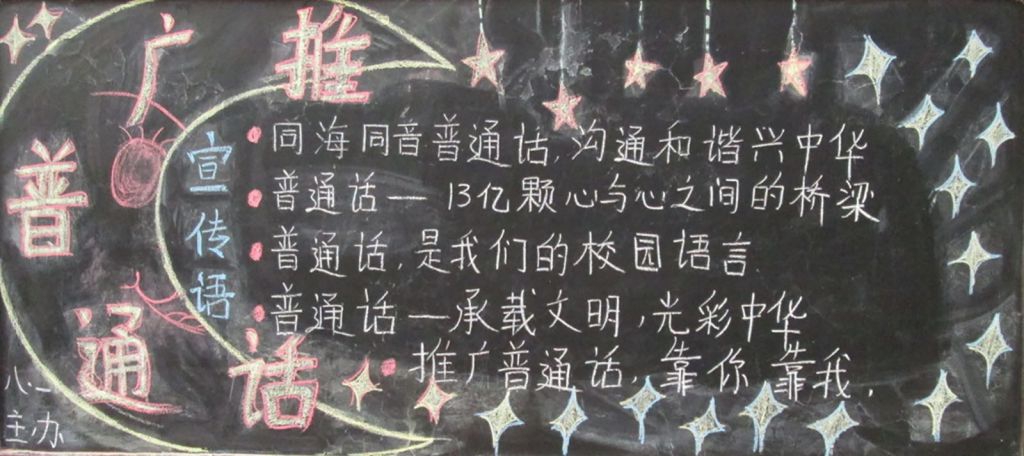 推广普通话
宣传语
同海同音普通话,沟通和谐兴中华
普通话—13亿颗心与心之间的桥梁
普通话,是我们的校园语言
普通话—承载文明,光彩中华
推广普通话,靠你靠我,
八一
主办